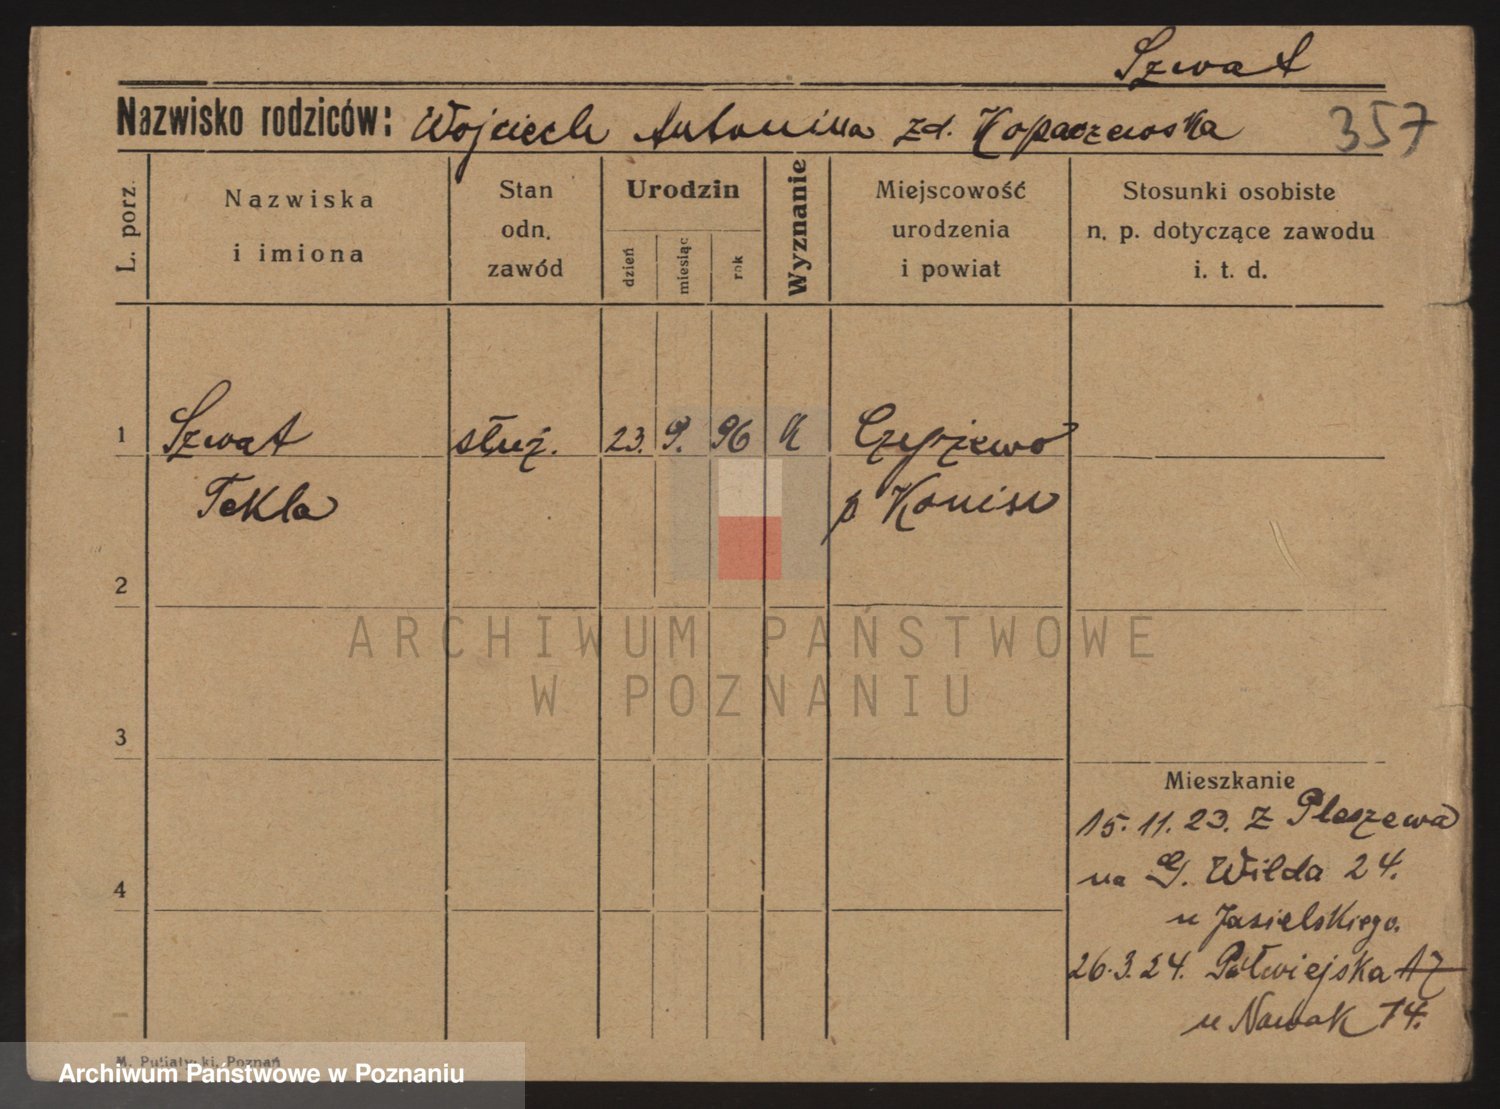 Szwat
Nazwisko rodziców: Wojciech Antonina zd. Kopaczewska 357
L. porz.
Nazwiska
i imiona
Stan
odn.
zawód
Urodzin
dzień
miesiąc
rok
Wyznanie
Miejscowość
urodzenia
i powiat
Stosunki osobiste
n. p. dotyczące zawodu
i. t. d.
1 Szwat służ. 23. 9. 96 K
Tekla p Konin
2
ARCHIWUM PAŃSTWOWE
W POZNANIU
3
Mieszkanie
15. 11. 23. z Pleszewa
na G. Wilda 24.
4
u Jasielskiego.
26. 3. 24. Półwiejska 17
u Nowak 14.
M. Putiatycki, Poznań
Archiwum Państwowe w Poznaniu